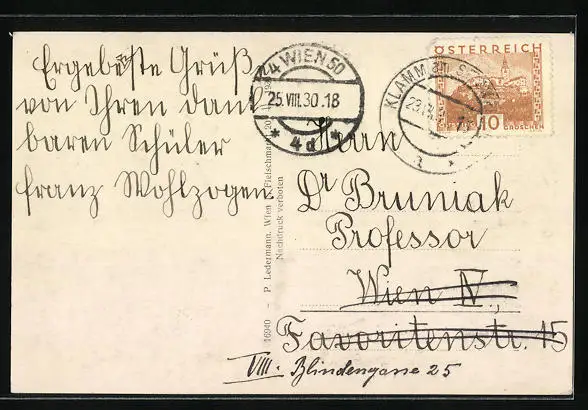 Ergebenste Grüße
von Ihren dank-
baren Schüler
Franz Wohlzogen.
4 WIEN 50
25.VIII.30.18
* 4d *
KLAMM
ÖSTERREICH
10
GROSCHEN
16940 - P. Ledermann, Wien I., Fleischmarkt
Nachdruck verboten
Herrn
Dr Bruniak
Professor
Wien IV.,
Favoritenstr. 15
VIII. Blindengasse 25